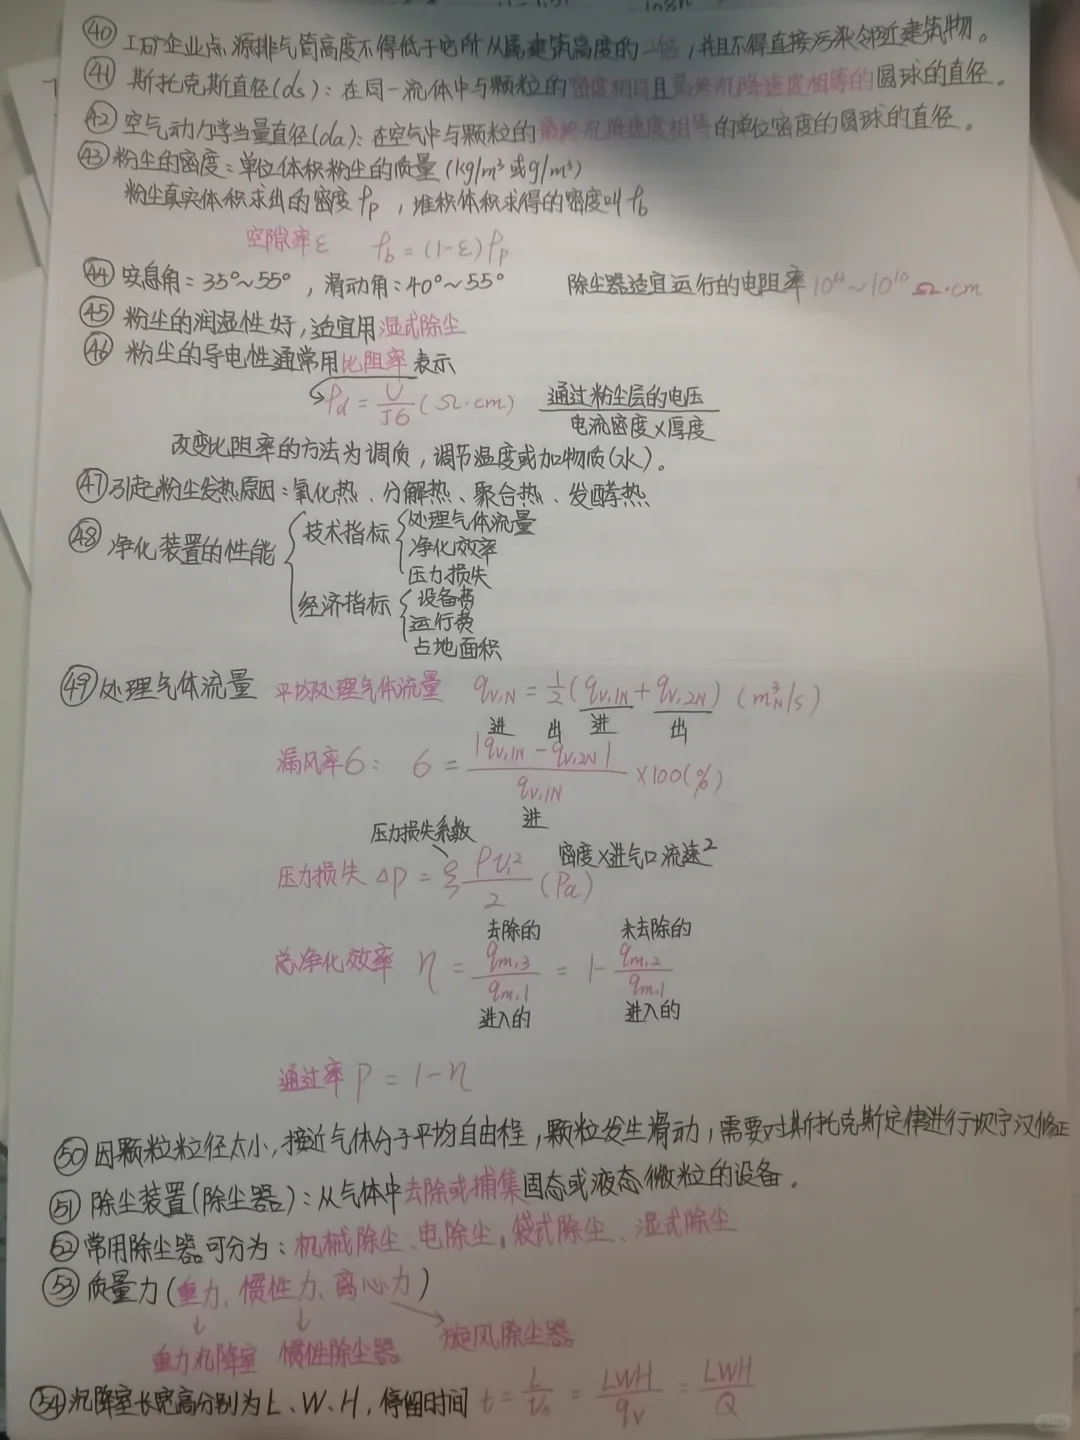 ㊵ 工矿企业点源排气筒高度不得低于它所从属建筑高度的2倍，并且不得直接污染邻近建筑物。
㊶ 斯托克斯直径(ds)：在同一流体中与颗粒的密度相同且最终沉降速度相等的圆球的直径。
㊷ 空气动力学当量直径(da)：在空气中与颗粒的最终沉降速度相等的单位密度的圆球的直径。
㊸ 粉尘的密度：单位体积粉尘的质量(kg/m³或g/m³)
粉尘真实体积求出的密度ρp，堆积体积求得的密度叫ρb
空隙率ε ρb=(1-ε)ρp
㊹ 安息角：35°~55°，滑动角：40°~55° 除尘器适宜运行的电阻率10⁴~10¹⁰Ω·cm
㊺ 粉尘的润湿性好，适宜用湿式除尘
㊻ 粉尘的导电性通常用比阻率表示
ρd = U/Jδ (Ω·cm) 通过粉尘层的电压/电流密度×厚度
改变比阻率的方法为调质，调节温度或加物质(水)。
㊼ 引起粉尘发热原因：氧化热、分解热、聚合热、发酵热
㊽ 净化装置的性能
技术指标
处理气体流量
净化效率
压力损失
经济指标
设备费
运行费
占地面积
㊾ 处理气体流量 平均处理气体流量 qv,N = 1/2(qv,1N + qv,2N) (m³N/s)
进 出 进 出
漏风率δ： δ = |qv,1N - qv,2N|/qv,1N ×100(%)
进
压力损失系数 密度×进气口流速²
压力损失 Δp = ξ ρv₁²/2 (Pa)
去除的 未去除的
总净化效率 η = qm,3/qm,1 = 1 - qm,2/qm,1
进入的 进入的
通过率 P = 1-η
㊿ 因颗粒粒径太小，接近气体分子平均自由程，颗粒发生滑动，需要对斯托克斯定律进行坎宁汉修正
(51) 除尘装置(除尘器)：从气体中去除或捕集固态或液态微粒的设备。
(52) 常用除尘器可分为：机械除尘、电除尘，袋式除尘、湿式除尘
(53) 质量力(重力、惯性力、离心力)
↓ ↓
重力沉降室 惯性除尘器 旋风除尘器
(54) 沉降室长宽高分别为L、W、H，停留时间 t = L/v₀ = LWH/qv = LWH/Q